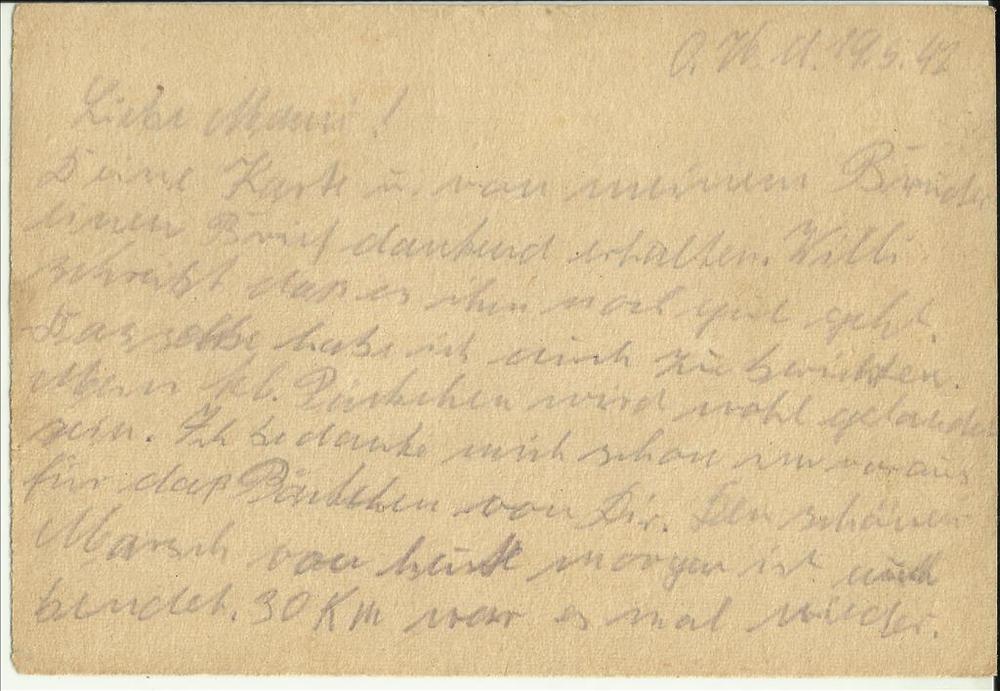 O. K. U. 19.5.42
Liebe Mami!
Deine Karte u. von meinem Bruder
einen Brief dankend erhalten. Willi
schreibt das es ihm noch gut geht.
Dasselbe habe ich auch zu berichten.
Mein kl. Päckchen wird wohl gelandet
sein. Ich bedanke mich schon im voraus
für daß Päckchen von Dir. Den schönen
Marsch von heute morgen ist auch
bendet. 30 Km war es mal wieder.